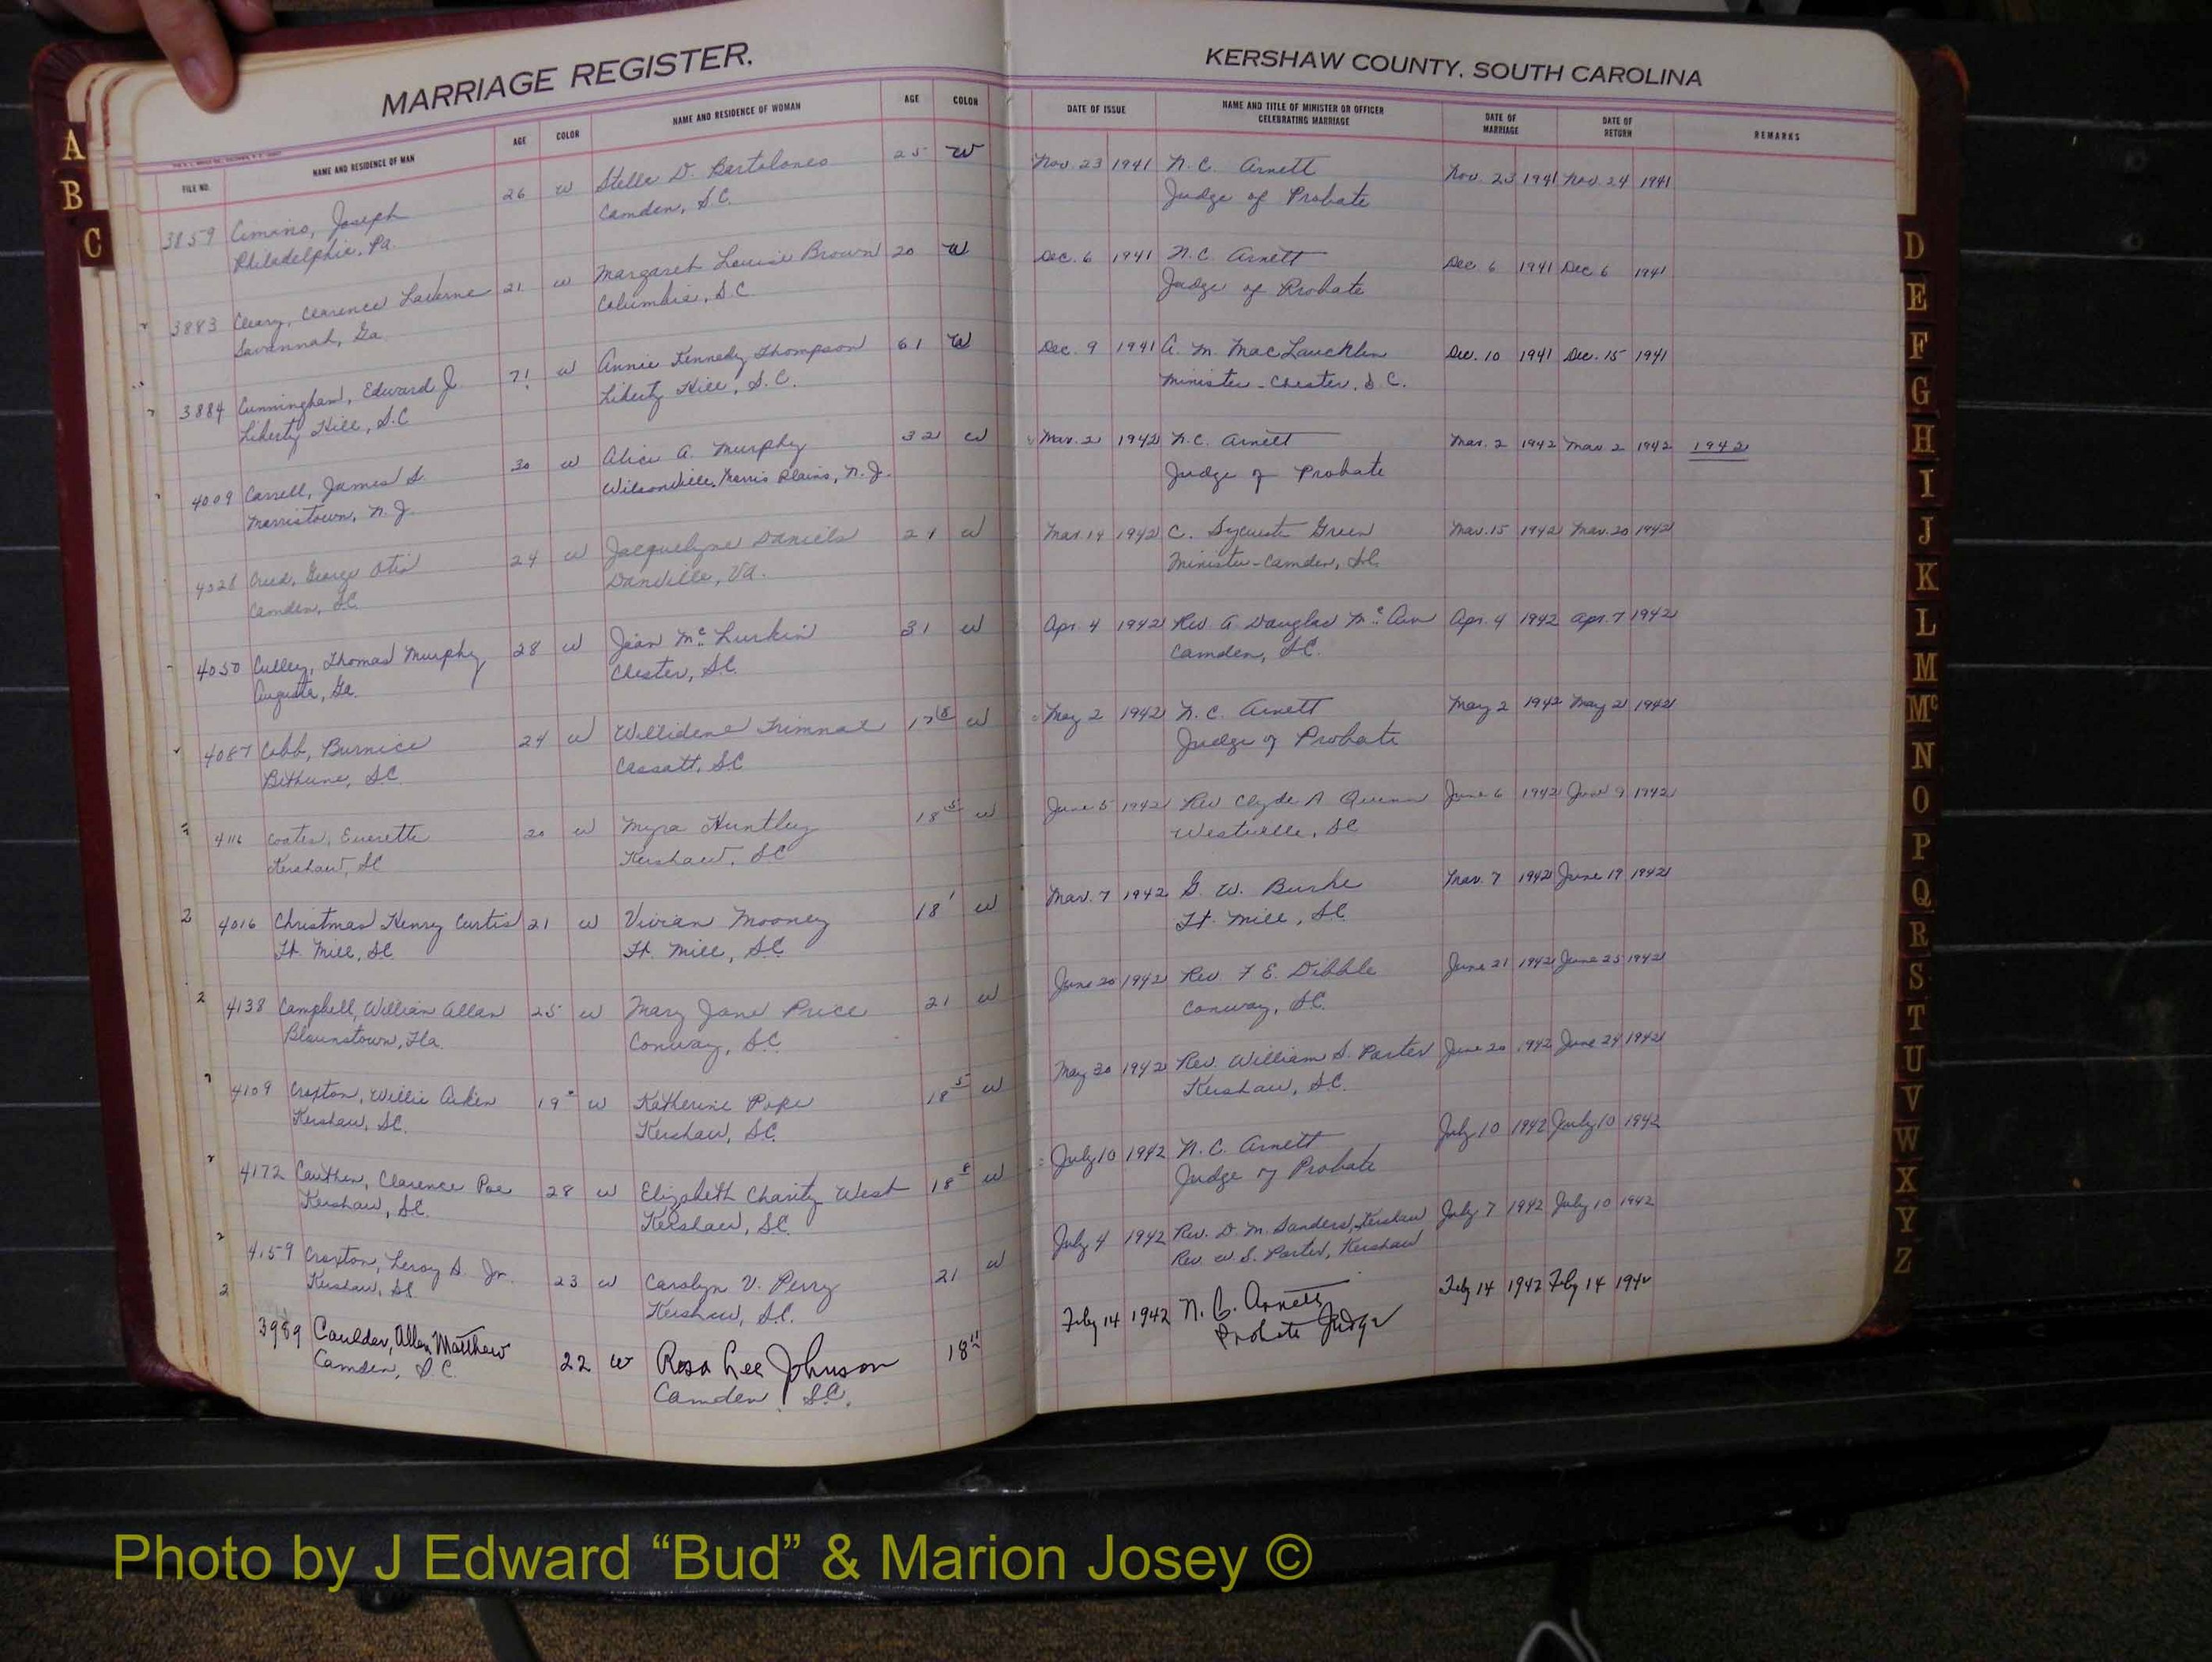 MARRIAGE REGISTER.
KERSHAW COUNTY, SOUTH CAROLINA
FILE NO. NAME AND RESIDENCE OF MAN AGE COLOR NAME AND RESIDENCE OF WOMAN AGE COLOR DATE OF ISSUE NAME AND TITLE OF MINISTER OR OFFICER CELEBRATING MARRIAGE DATE OF MARRIAGE DATE OF RETURN REMARKS
3859 Cimino, Joseph 26 W Stella D. Bartolomeo 25 W Nov. 23 1941 N. C. Arnett Nov. 23 1941 Nov. 24 1941
Philadelphia, Pa. Camden, S.C. Judge of Probate
3883 Cleary, Clarence LaVerne 21 W Margaret Louise Brown 20 W Dec. 6 1941 N. C. Arnett Dec. 6 1941 Dec. 6 1941
Savannah, Ga. Columbia, S.C. Judge of Probate
3884 Cunningham, Edward J. 71 W Annie Kennedy Thompson 61 W Dec. 9 1941 A. M. MacLauchlin Dec. 10 1941 Dec. 15 1941
Liberty Hill, S.C. Liberty Hill, S.C. Minister - Chester, S.C.
4009 Carrell, James S. 30 W Alice A. Murphy 32 W Mar. 2 1942 N. C. Arnett Mar. 2 1942 Mar 2 1942 1942
Morristown, N.J. Morris Plains, N.J. Judge of Probate
4028 Creed, George Otis 24 W Jacquelyne Daniels 21 W Mar. 14 1942 C. Sylvester Green Mar. 15 1942 Mar. 20 1942
Camden, S.C. Danville, Va. Minister - Camden, S.C.
4050 Culley, Thomas Murphy 28 W Jean McLurkin 31 W Apr. 4 1942 Rev. A. Douglas Apr. 4 1942 Apr. 7 1942
Augusta, Ga. Chester, S.C. Camden, S.C.
4087 Cobb, Burnice 24 W Willidene Trimnal 17 8 W May 2 1942 N. C. Arnett May 2 1942 May 2 1942
Bethune, S.C. Cassatt, S.C. Judge of Probate
4116 Coates, Everette 20 W Myra Huntley 18 5 W June 5 1942 Rev Clyde A Quinn June 6 1942 June 9 1942
Kershaw, S.C. Kershaw, S.C. Westville, S.C.
4016 Christmas Henry Curtis 21 W Vivian Mooney 18 1 W Mar. 7 1942 G. W. Burke Mar. 7 1942 June 19 1942
Ft. Mill, S.C. Ft. Mill, S.C. Ft. Mill, S.C.
4138 Campbell, William Allan 25 W Mary Jane Price 21 W June 20 1942 Rev. F. E. Dibble June 21 1942 June 25 1942
Blounstown, Fla. Conway, S.C. Conway, S.C.
4109 Croxton, Willie Aiken 19 W Katherine Pope 18 5 W May 30 1942 Rev. William S. Porter June 20 1942 June 24 1942
Kershaw, S.C. Kershaw, S.C. Kershaw, S.C.
4172 Cauthen, Clarence Poe 28 W Elizabeth Charity West 18 8 W July 10 1942 N. C. Arnett July 10 1942 July 10 1942
Kershaw, S.C. Kershaw, S.C. Judge of Probate
4159 Croxton, Leroy S. Jr. 23 W Carolyn V. Perry 21 W July 4 1942 Rev. D. M. Sanders, Kershaw July 7 1942 July 10 1942
Kershaw, S.C. Kershaw, S.C. Rev. W. S. Porter, Kershaw
3989 Caulder, Allen Matthew 22 W Rosa Lee Johnson 18 11 Feby 14 1942 N. C. Arnett Feby 14 1942 Feby 14 1942
Camden, S.C. Camden, S.C. Probate Judge
A
B
C
D
E
F
G
H
I
J
K
L
M
Mc
N
O
P
Q
R
S
T
U
V
W
X
Y
Z
Photo by J Edward “Bud” & Marion Josey ©